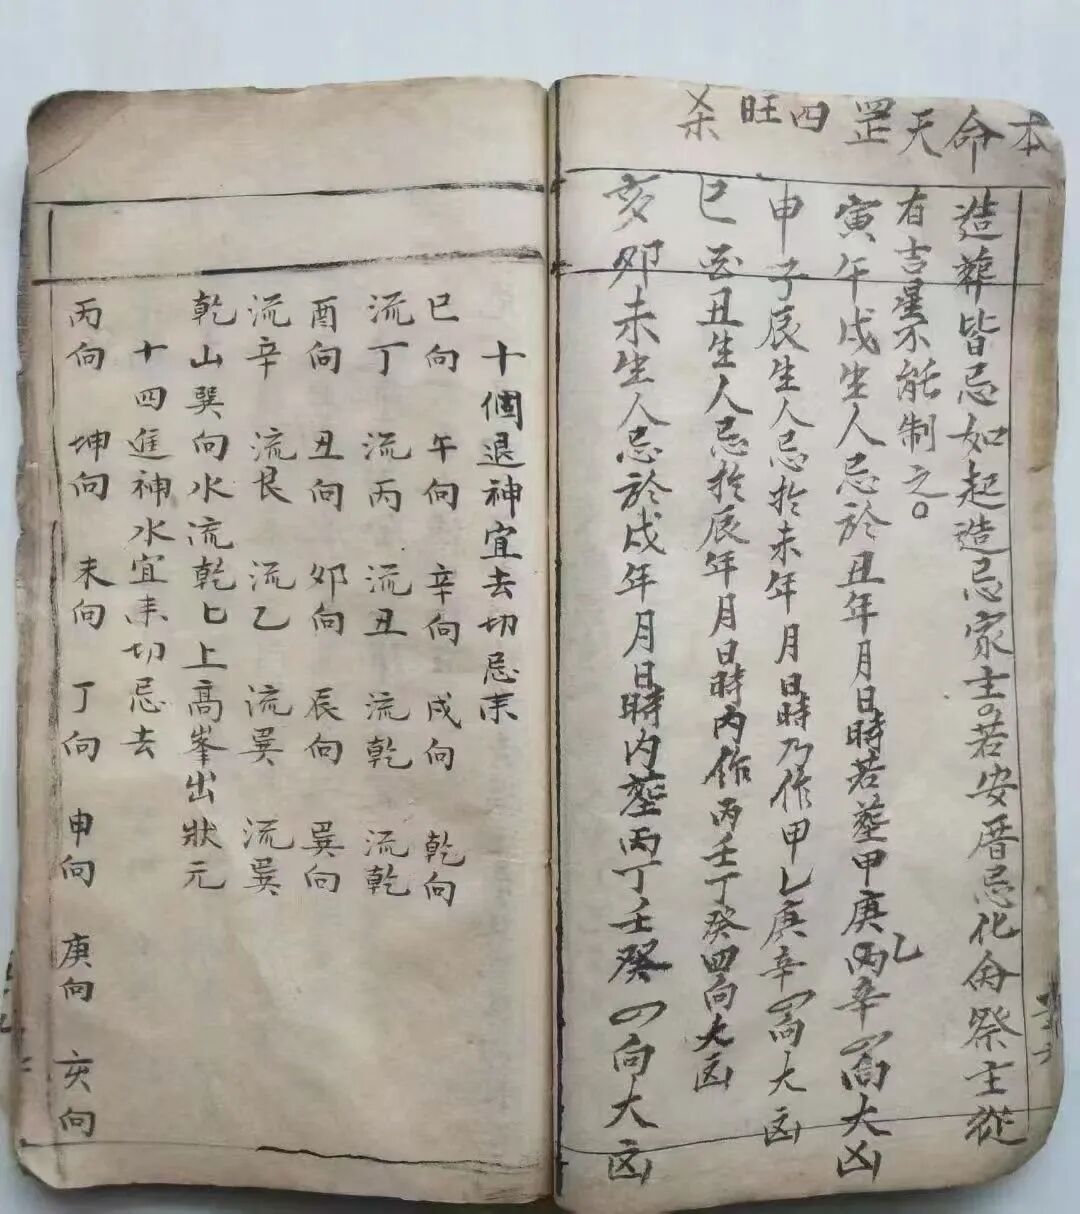 本命天罡四旺杀
造葬皆忌如起造忌家主。若安厝忌化命祭主從
有吉星不能制之。
寅午戌生人忌於丑年月日時若塟甲庚丙乙辛四向大凶
申子辰生人忌於未年月日時乃作甲乙庚辛四向大凶
巳酉丑生人忌於辰年月日時內作丙壬丁癸四向大凶
亥卯未生人忌於戌年月日時內塟丙丁壬癸四向大凶
十個退神宜去切忌来
巳向 午向 辛向 戌向 乾向
流丁 流丙 流丑 流乾 流乾
酉向 丑向 卯向 辰向 巽向
流辛 流艮 流乙 流巽 流巽
乾山巽向水流乾匕上高峯出狀元
十四進神水宜来切忌去
丙向 坤向 未向 丁向 申向 庚向 亥向